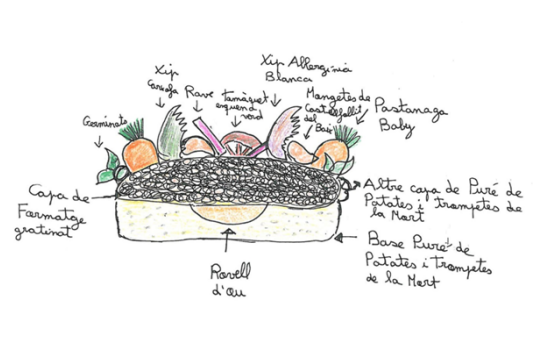 Xip
Carxofa
Rave
Tomàquet
esquena
verd
Xip Albergínia
Blanca
Mongetes de
Castellfollit
del
Boix
Pastanaga
Baby
Germinats
Capa de
Formatge
gratinat
Altre capa de Puré de
Patates i trompetes de
la Mort
Base Puré de
Patates i Trompetes
de la Mort
Rovell
d'ou